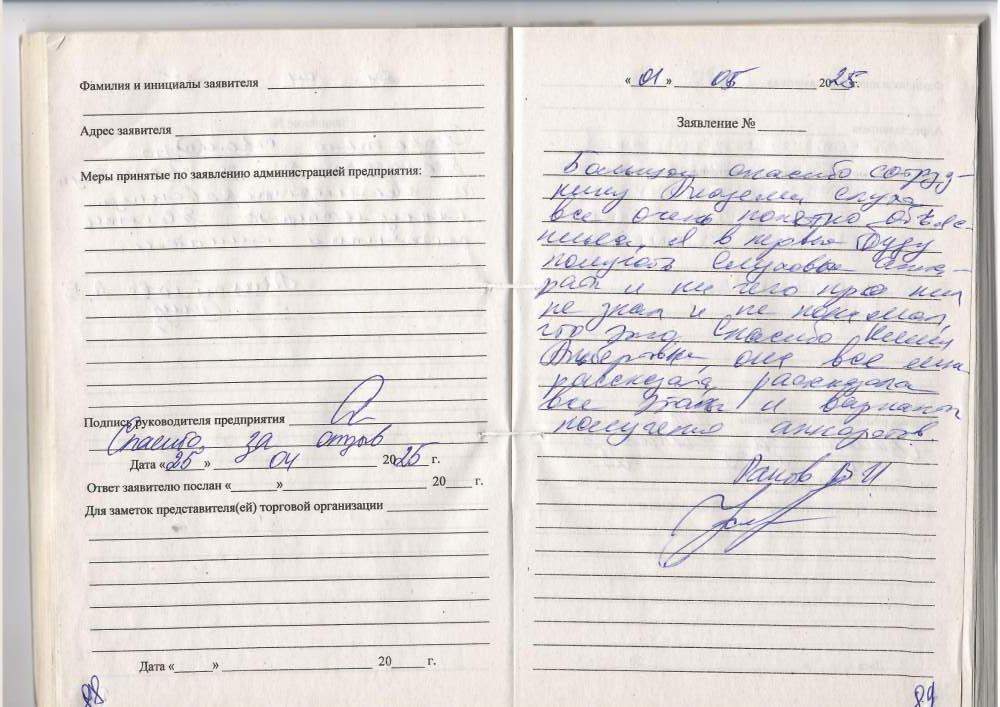 Фамилия и инициалы заявителя
Адрес заявителя
Меры принятые по заявлению администрацией предприятия:
Подпись руководителя предприятия
Спасибо за отзыв
Дата «25» 04 2025 г.
Ответ заявителю послан «______»____________ 20____ г.
Для заметок представителя(ей) торговой организации
Дата «______» ____________ 20____ г.
88
«01» 05 2025г.
Заявление № ______
Большое спасибо сотруд-
нику Академии слуха
все очень понятно объяс-
нила, я в первые буду
получать слуховые аппа-
раты и ни чего про них
не знал и не понимал,
что это. Спасибо
она все мне
рассказала, рассказала
все этапы и варианты
получения аппаратов.
В И
89